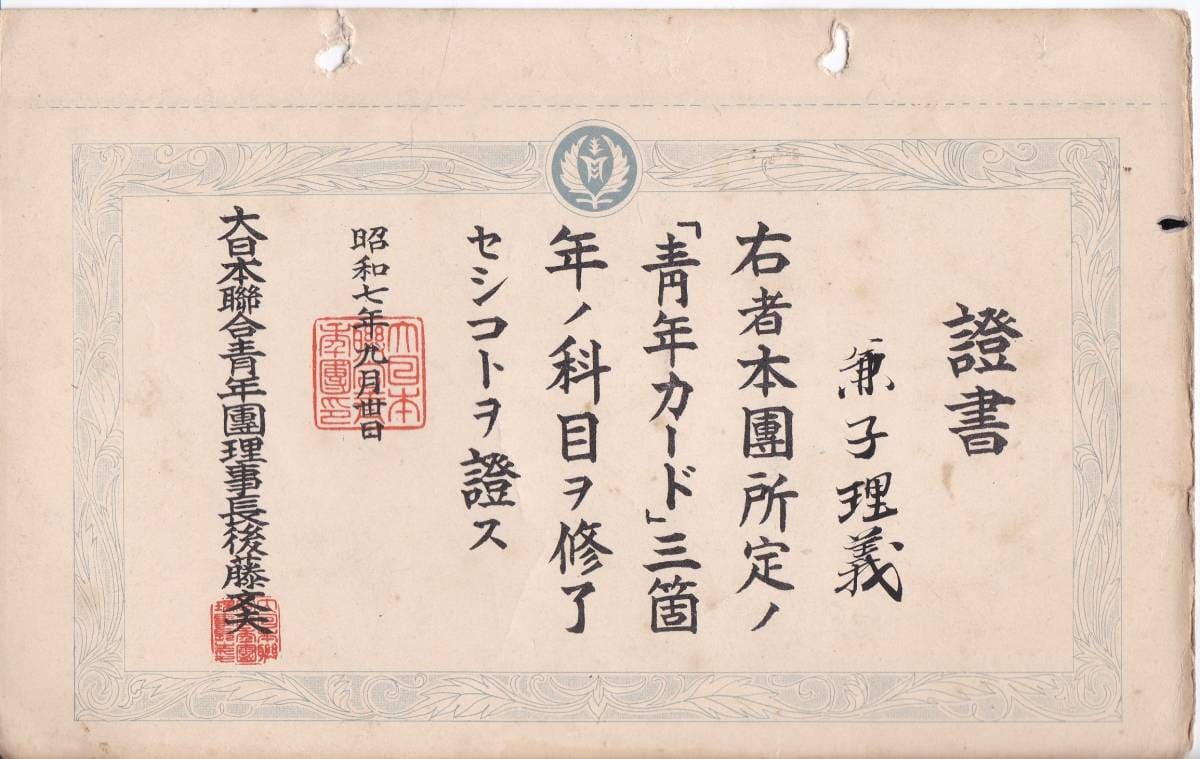 證書
兼子理義
右者本團所定ノ
「青年カード」三箇
年ノ科目ヲ修了
セシコトヲ證ス
昭和七年九月丗日
大日本聯合青年團理事長後藤文夫
大日本聯合青年團印